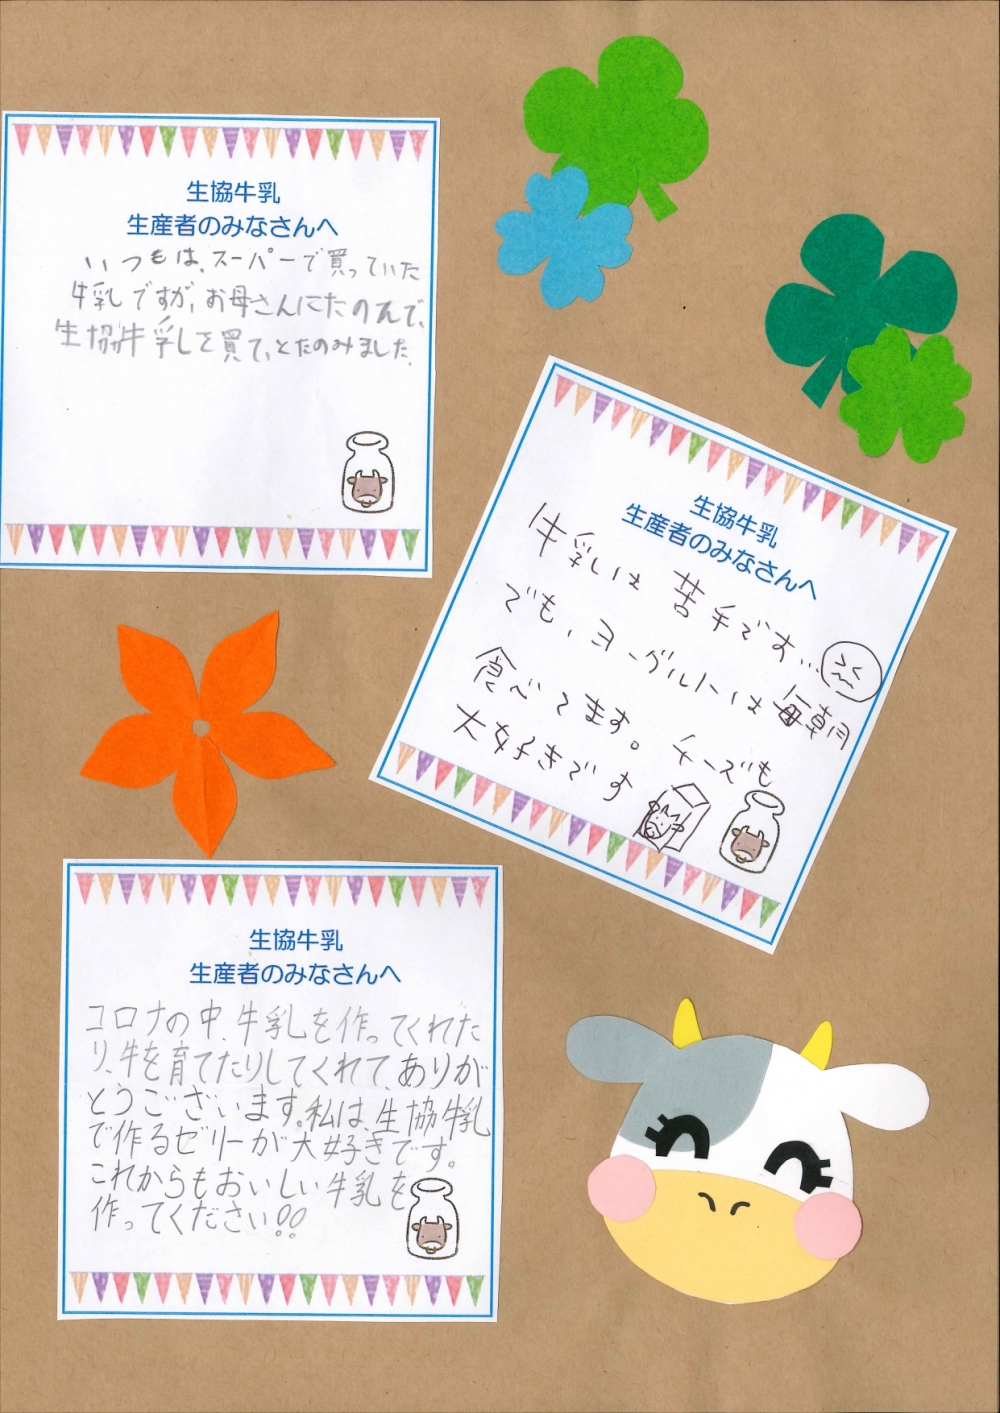 生協牛乳
生産者のみなさんへ
いつもは、スーパーで買っていた
牛乳ですが、お母さんにたのんで、
生協牛乳しを買て、とたのみました。
生協牛乳
生産者のみなさんへ
牛乳は 苦手です…
でも、ヨーグルトは毎朝
食べてます。チーズも
大好きです
生協牛乳
生産者のみなさんへ
コロナの中、牛乳を作ってくれた
り、牛を育てたりしてくれて、ありが
とうございます。私は、生協牛乳
で作るゼリーが大好きです。
これからもおいしい牛乳を
作ってください!!